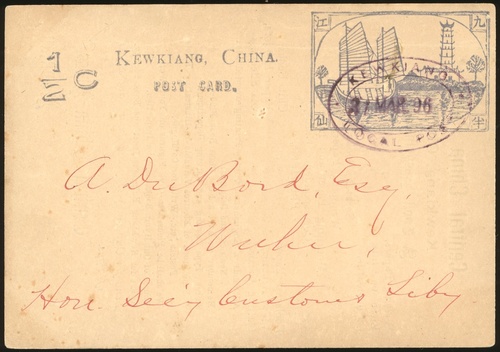 1
2 C
KEWKIANG, CHINA.
POST CARD.
江 九
仙 半
KEWKIANG
27 MAR 96
LOCAL POST
A. DuBord, Esq,
Wuhu,
Hon. Sec'y Customs Liby.